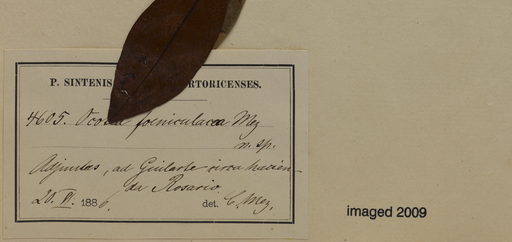 P. SINTENIS RTORICENSES.
4605. Ocotea foeniculacea Mez
n. sp.
Adjuntas, ad Guilarte circa hacien-
da Rosario
20. VI. 1886. det. C. Mez.
imaged 2009